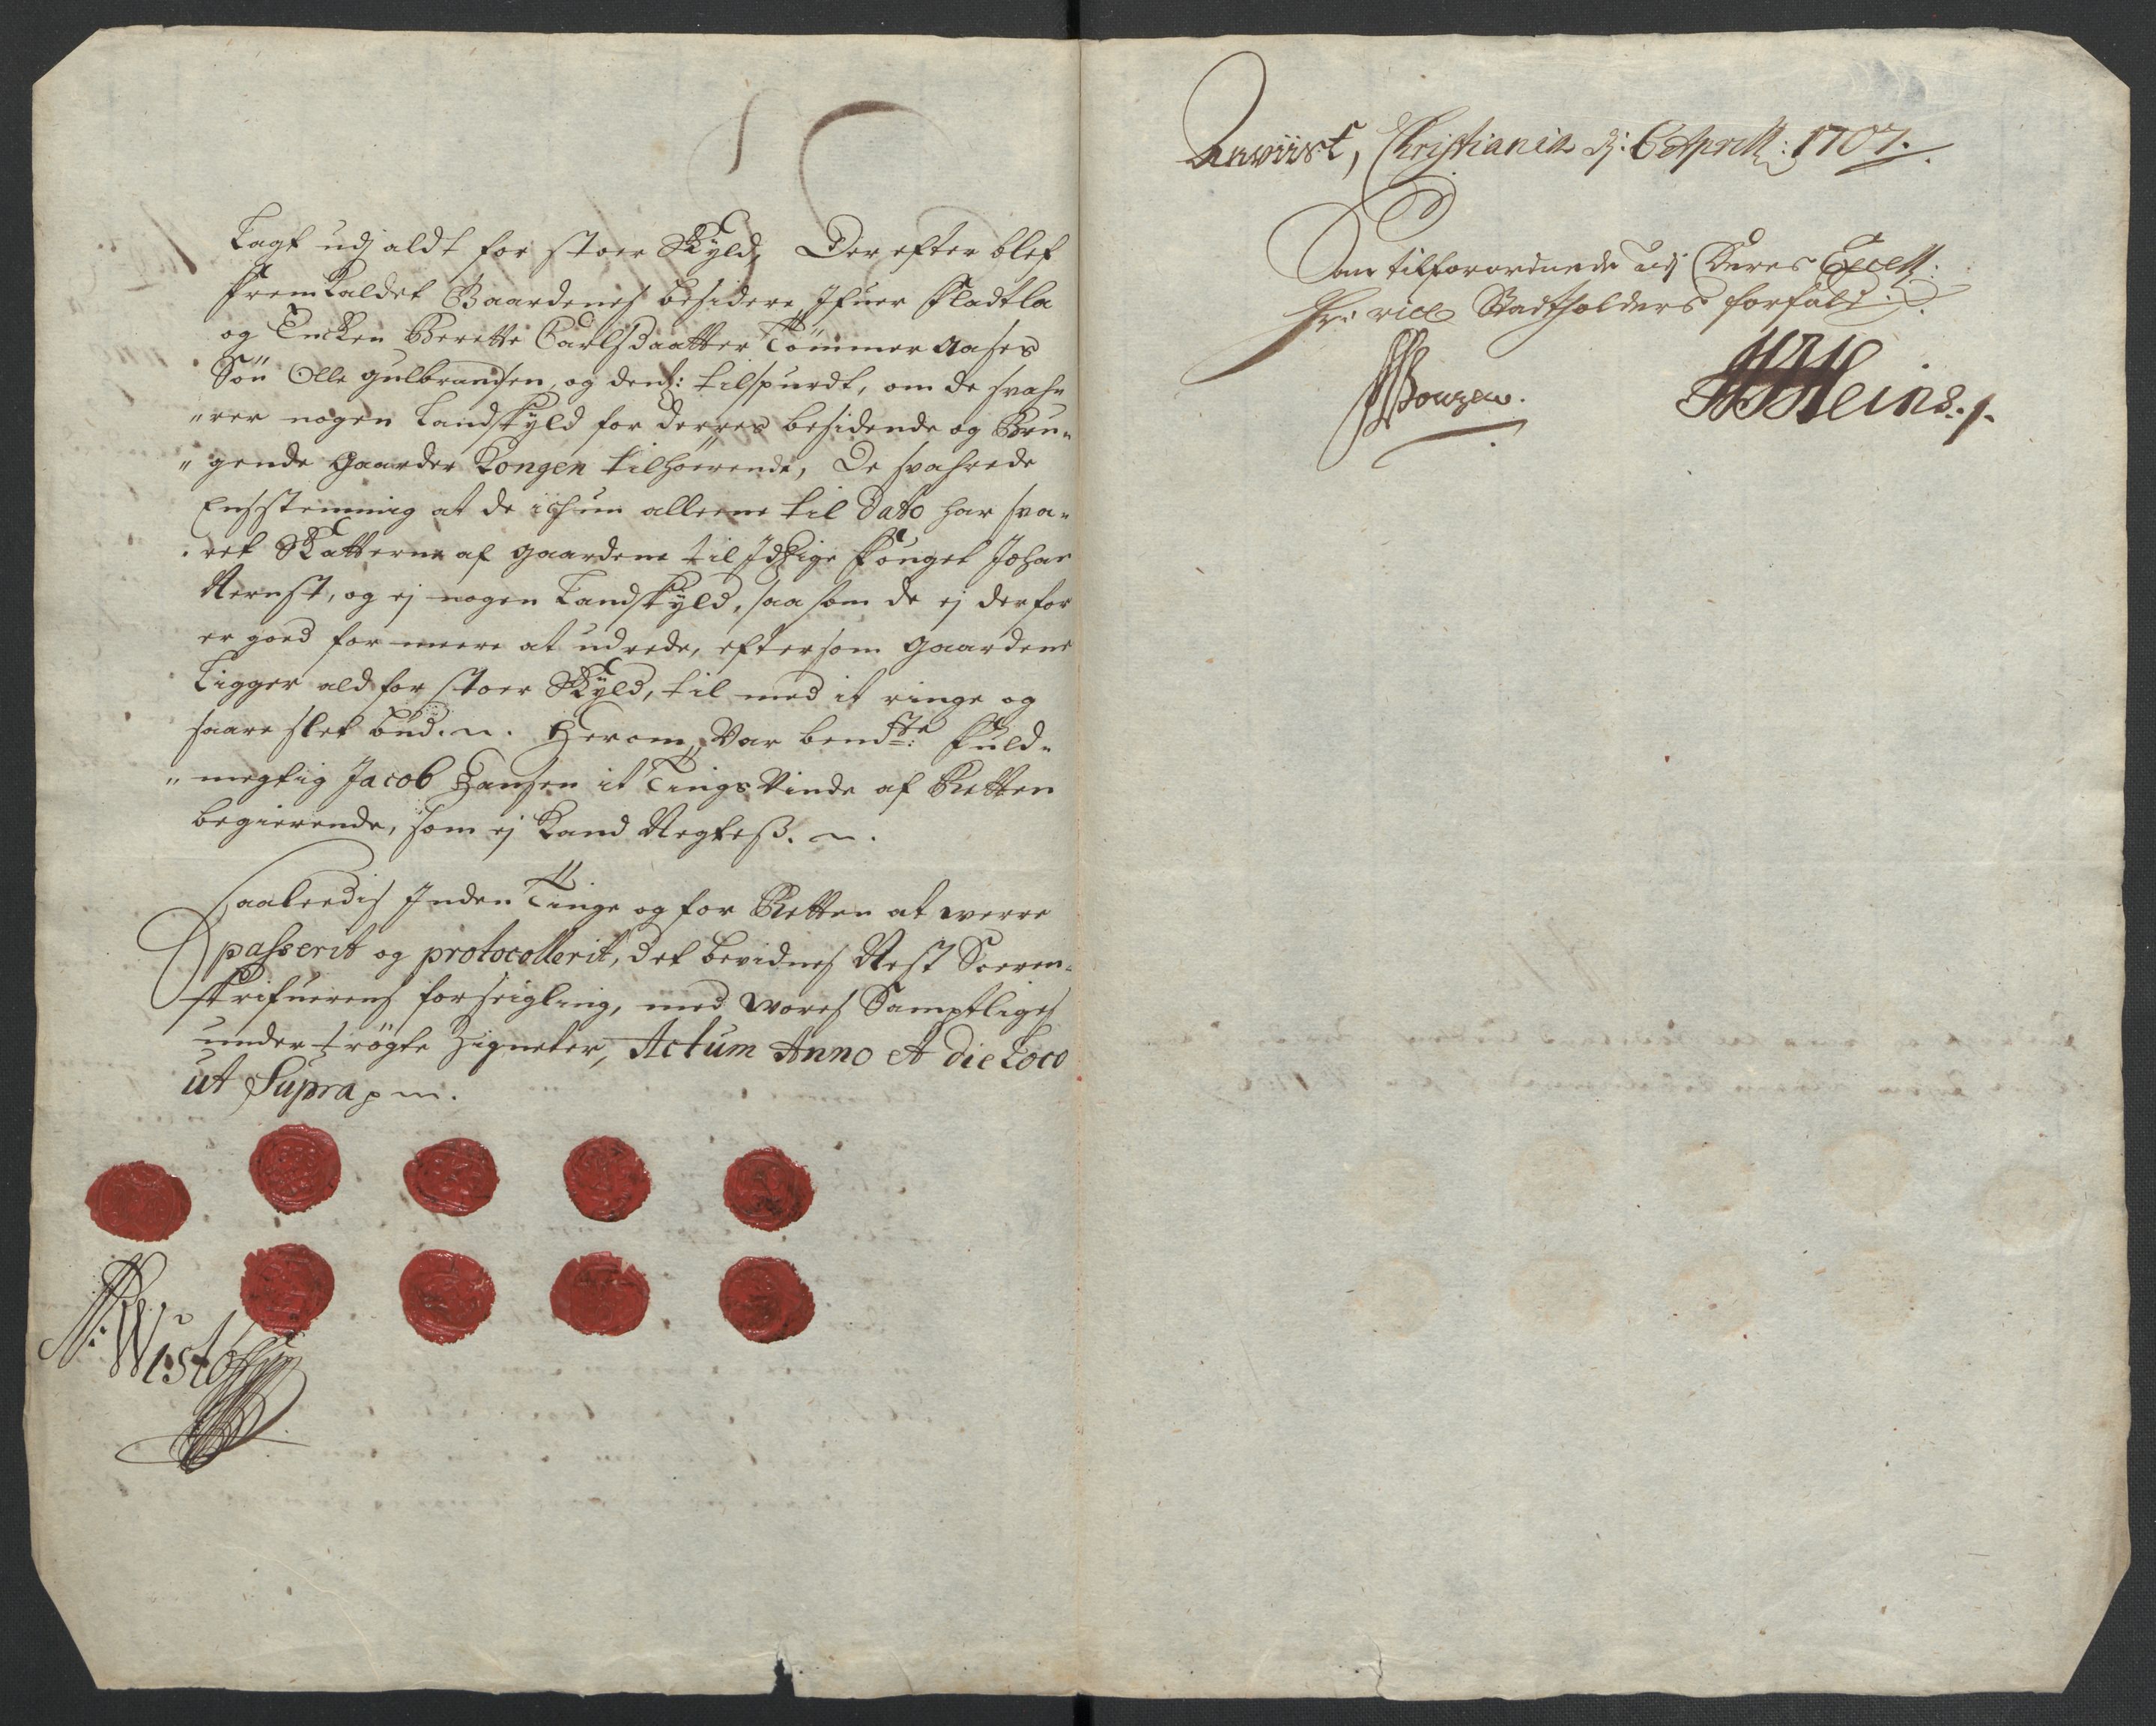 Lagt udj aldt for stoer Skyld, Der efter blef
fremkaldet Gaardenes besidere Ifuer Fladtla
og Encken Berette Carlsdaatter Tömmer Aases
Sön Olle Gulbrandsen, og dend: tilspurdt, om de svah„
„rer nogen Landskyld for derres besidende og Bru„
„gende Gaarder Kongen tilhörende, De svahrede
Eenstemmig at de ichun alleene til Dato har sva„
„ret Skatterne af gaardene til Idtzige Fouget Johan
Rernst, og ej nogen Landskyld, saa som de ej derfor
er goed for meere at udrede, eftersom gaardene
Ligger ald for stoer Skyld, til med it ringe og
saare slet bud. Herom, Var bemdte: Fuld„
„megtig Jacob Hansen it Tings Vinde af Retten
begierende, som ej kand Negteß.
Saaleedis Inden Tinge og for Retten at werre
passerit og protocollerit, det bevidnes Nest Soeren„
skrifuerens forseigling, med wores Samptliges
undertrögte Zigneter, Actum Anno et die Loco
ut Supra
Anviist, Christiania dj: 6 Aprill: 1707.
Som tilforordnede udj Deres Excell:
Hr: vice Stadtholders forfald.